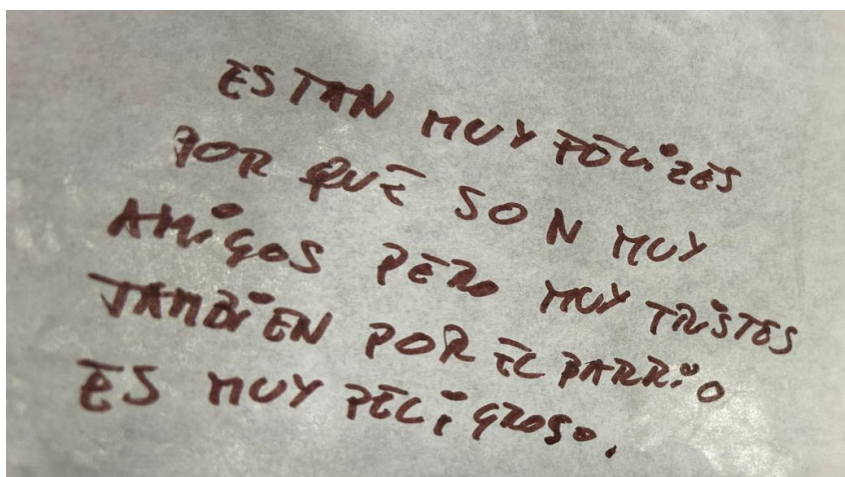 ESTAN MUY FELiZES
POR QUE SON MUY
AMiGOS PERO MUY TRiSTES
TAMBiEN POR EL BARRiO
ES MUY PELiGROSO.